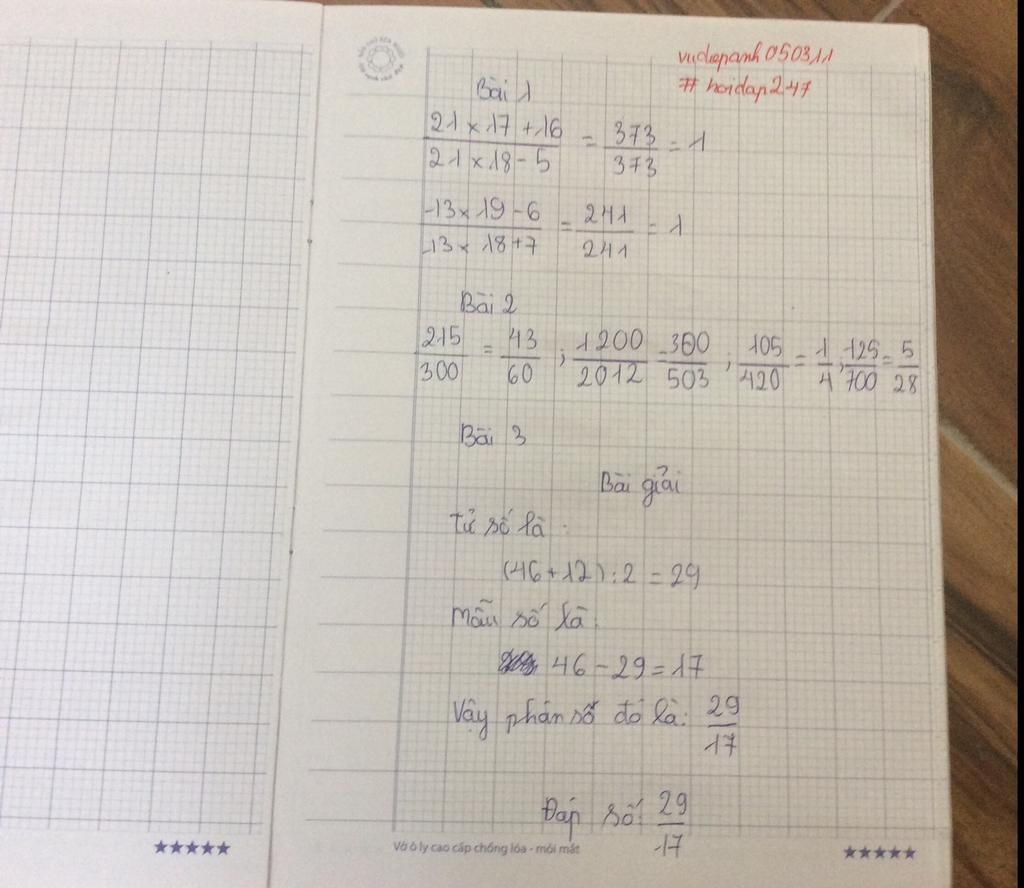 vudiepanh050311
# hoidap247
Bài 1
21 × 17 + 16 / 21 × 18 - 5 = 373 / 373 = 1
13 × 19 - 6 / 13 × 18 + 7 = 241 / 241 = 1
Bài 2
215 / 300 = 43 / 60 ; 1200 / 2012 = 300 / 503 ; 105 / 420 = 1 / 4 ; 125 / 700 = 5 / 28
Bài 3
Bài giải
Tử số là:
(46 + 12) : 2 = 29
Mẫu số là:
46 - 29 = 17
Vậy phân số đó là: 29 / 17
Đáp số: 29 / 17
Vở ô ly cao cấp chống lóa - mỏi mắt